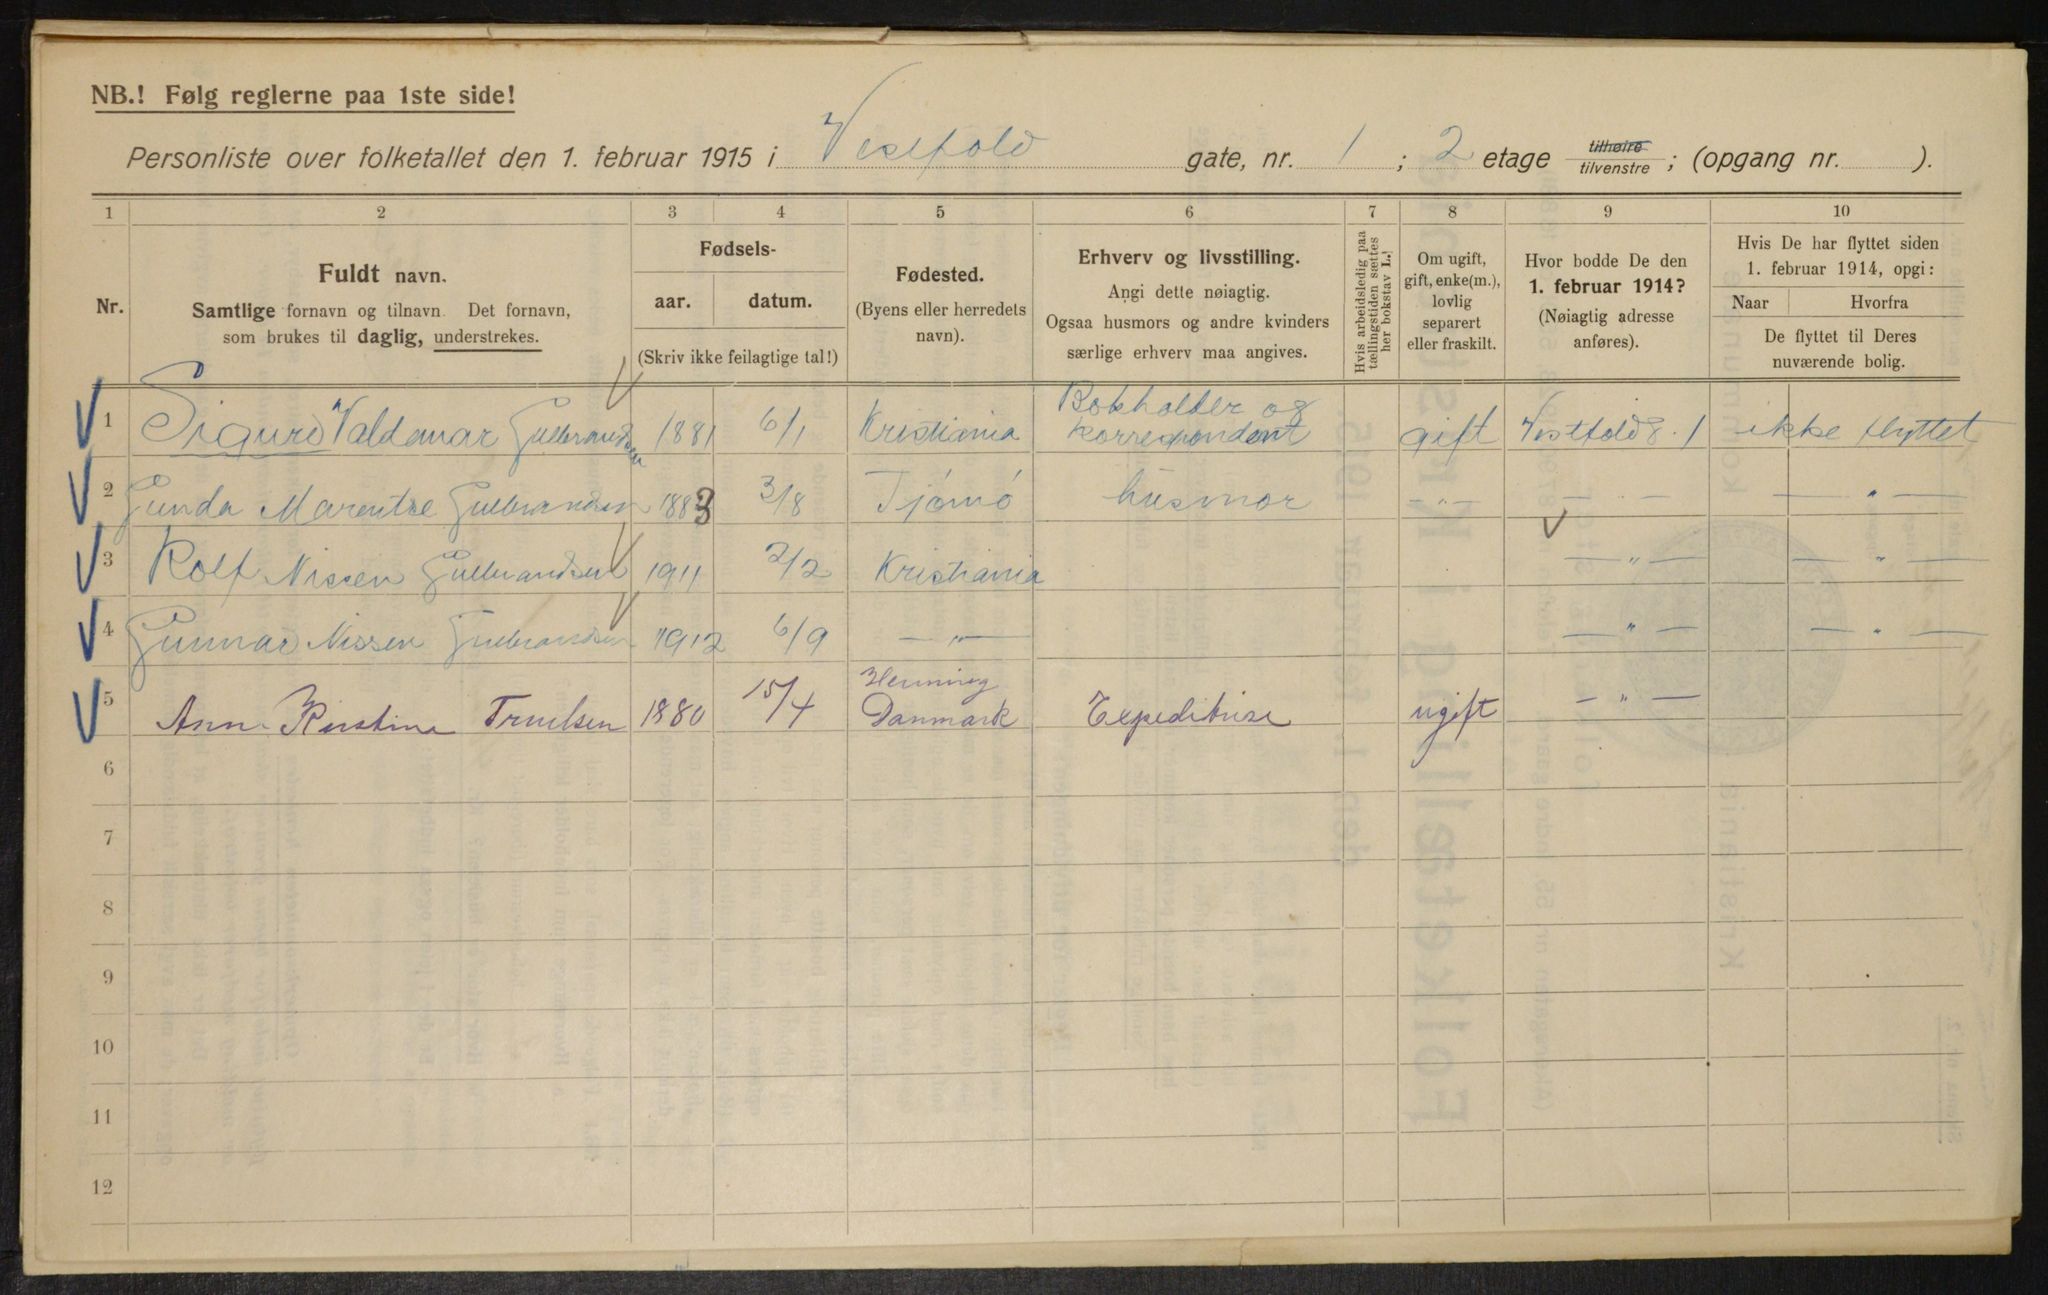 NB.! Følg reglerne paa 1ste side!
Personliste over folketallet den 1. februar 1915 i Vestfold gate, nr. 1 ; 2 etage tilhøire tilvenstre ; (opgang nr. ).
1 2 3 4 5 6 7 8 9 10
Nr.
Fuldt navn.
Samtlige fornavn og tilnavn. Det fornavn,
som brukes til daglig, understrekes.
Fødsels-
aar. datum.
(Skriv ikke feilagtige tal!)
Fødested.
(Byens eller herredets
navn).
Erhverv og livsstilling.
Angi dette nøiagtig.
Ogsaa husmors og andre kvinders
særlige erhverv maa angives.
Hvis arbeidsledig paa
tællingstiden sættes
her bokstav L.!
Om ugift,
gift, enke(m.),
lovlig
separert
eller fraskilt.
Hvor bodde De den
1. februar 1914?
(Nøiagtig adresse
anføres).
Hvis De har flyttet siden
1. februar 1914, opgi:
Naar Hvorfra
De flyttet til Deres
nuværende bolig.
1 Sigurd Valdemar Gulbrandsen 1881 6/1 Kristiania Bokholder og korrespondent gift Vestfoldg. 1 ikke flyttet
2 Gunda Gulbrandsen 1883 3/8 Tjømø husmor — " — — " — — " —
3 Rolf Nissen Gulbrandsen 1911 2/2 Kristiania — " — — " —
4 Gunnar Nissen Gulbrandsen 1912 6/9 — " — — " — — " —
5 Ann Kirstina Truelsen 1880 15/4 Henning Danmark Expeditrise ugift — " —
6
7
8
9
10
11
12